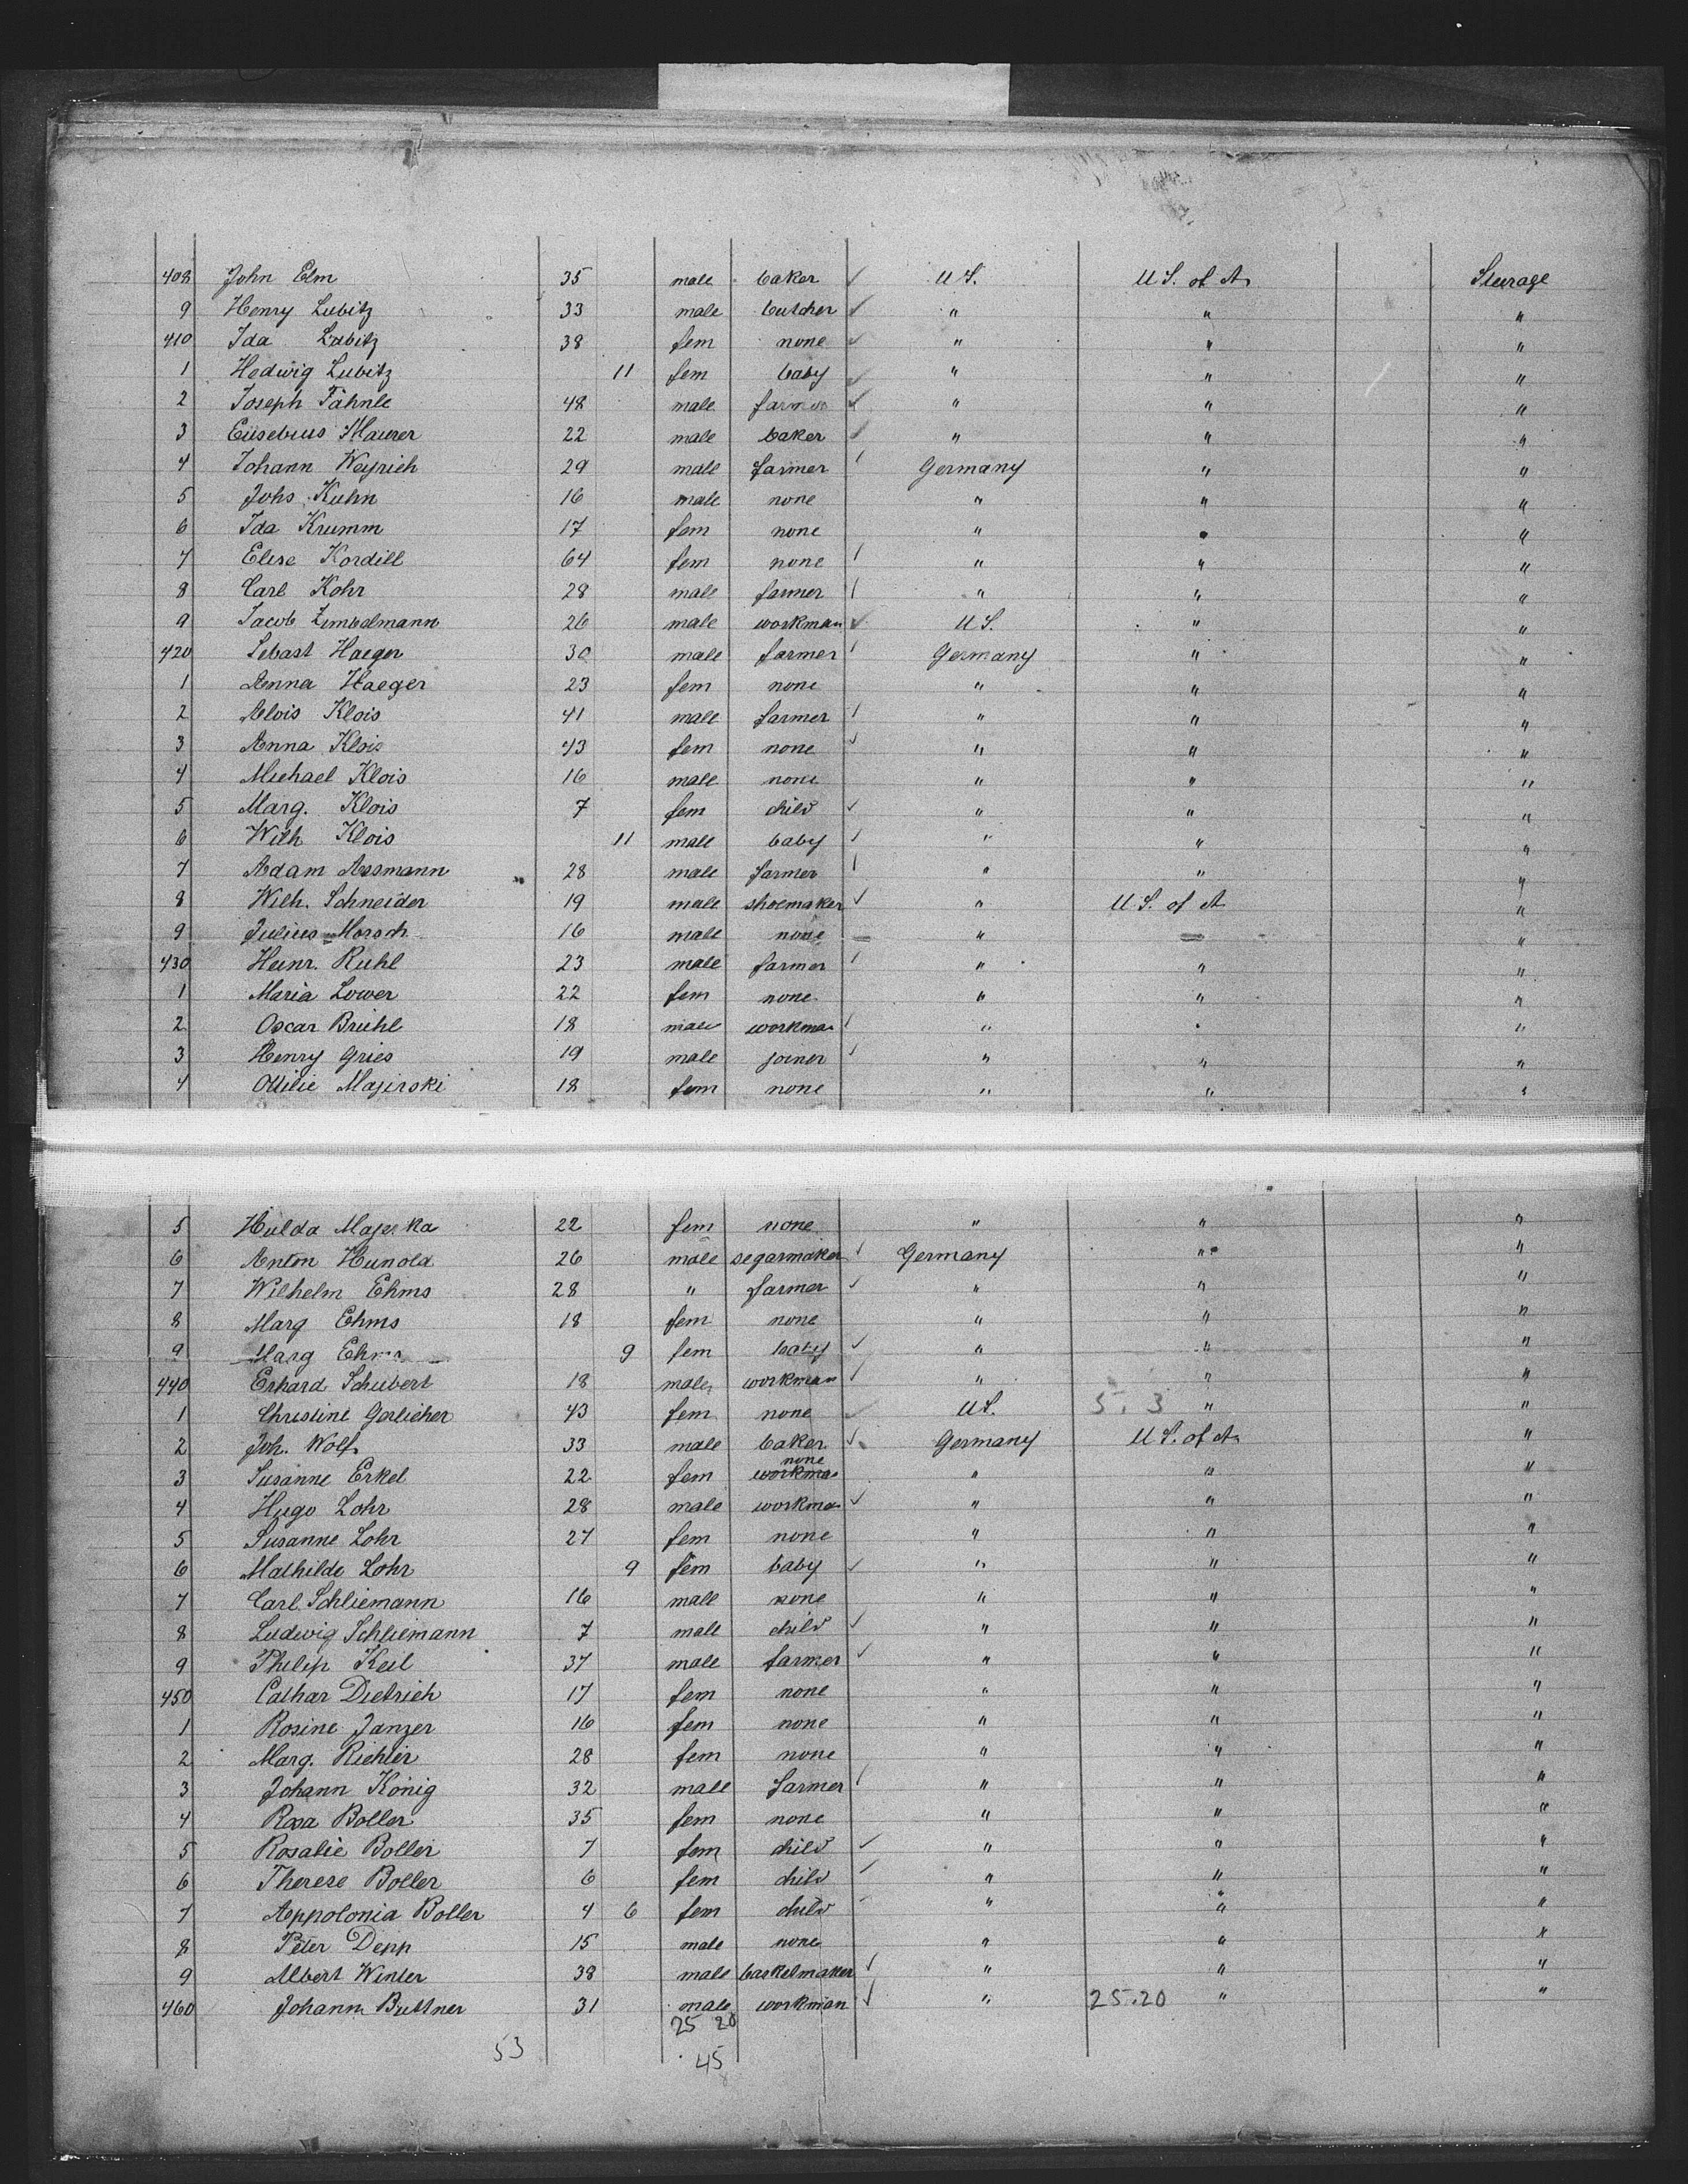 408 John Elm 35 male baker ✓ U S. U S. of A. Steerage
9 Henry Lubitz 33 male butcher ✓ " " "
410 Ida Lubitz 38 fem none ✓ " " "
1 Hedwig Lubitz 11 fem baby ✓ " " "
2 Joseph Fähnle 48 male farmer ✓ " " "
3 Eusebius Maurer 22 male baker ✓ " " "
4 Johann Weyrich 29 male farmer / Germany " "
5 Johs Kuhn 16 male none " " "
6 Ida Krumm 17 fem none " " "
7 Elise Kordill 64 fem none / " " "
8 Carl Kohr 28 male farmer / " " "
9 Jacob Zimbelmann 26 male workman ✓ U S. " "
420 Sebast Haeger 30 male farmer / Germany " "
1 Anna Haeger 23 fem none " " "
2 Alois Klois 41 male farmer / " " "
3 Anna Klois 43 fem none ✓ " " "
4 Michael Klois 16 male none " " "
5 Marg. Klois 7 fem child ✓ " " "
6 Wilh Klois 11 male baby / " " "
7 Adam Assmann 28 male farmer / " " "
8 Wilh. Schneider 19 male shoemaker ✓ " U. S. of A "
9 Julius Morsch 16 male none " "
430 Heinr. Ruhl 23 male farmer / " " "
1 Maria Lower 22 fem none " " "
2 Oscar Brühl 18 male workman / " " "
3 Henry Gries 19 male joiner ✓ " " "
4 Ottilie Majirski 18 fem none " " "
5 Hulda Majeska 22 fem none " " "
6 Anton Hunold 26 male segarmaker ✓ Germany " "
7 Wilhelm Ehms 28 " farmer ✓ " " "
8 Marg Ehms 18 fem none " " "
9 Marg Ehms 9 fem baby ✓ " " "
440 Erhard Schubert 18 male workman / " " "
1 Christine Gerlicher 43 fem none ✓ U S. 5. 3 " "
2 Joh. Wolf 33 male baker ✓ Germany U S. of A. "
none
3 Susanne Erkel 22 fem workman " " "
4 Hugo Lohr 28 male workman ✓ " " "
5 Susanne Lohr 27 fem none " " "
6 Mathilde Lohr 9 fem baby ✓ " " "
7 Carl Schliemann 16 male none " " "
8 Ludwig Schliemann 7 male child ✓ " " "
9 Philip Keil 37 male farmer ✓ " " "
450 Cathar Dietrich 17 fem none " " "
1 Rosine Janzer 16 fem none " " "
2 Marg. Richter 28 fem none " " "
3 Johann König 32 male farmer / " " "
4 Rosa Boller 35 fem none " " "
5 Rosalie Boller 7 fem child ✓ " " "
6 Therese Boller 6 fem child ✓ " " "
7 Appolonia Boller 4 6 fem child " " "
8 Peter Depp 15 male none " " "
9 Albert Winter 38 male basketmaker ✓ " " "
460 Johann Buttner 31 male workman ✓ " 25.20 " "
25 20
53 45